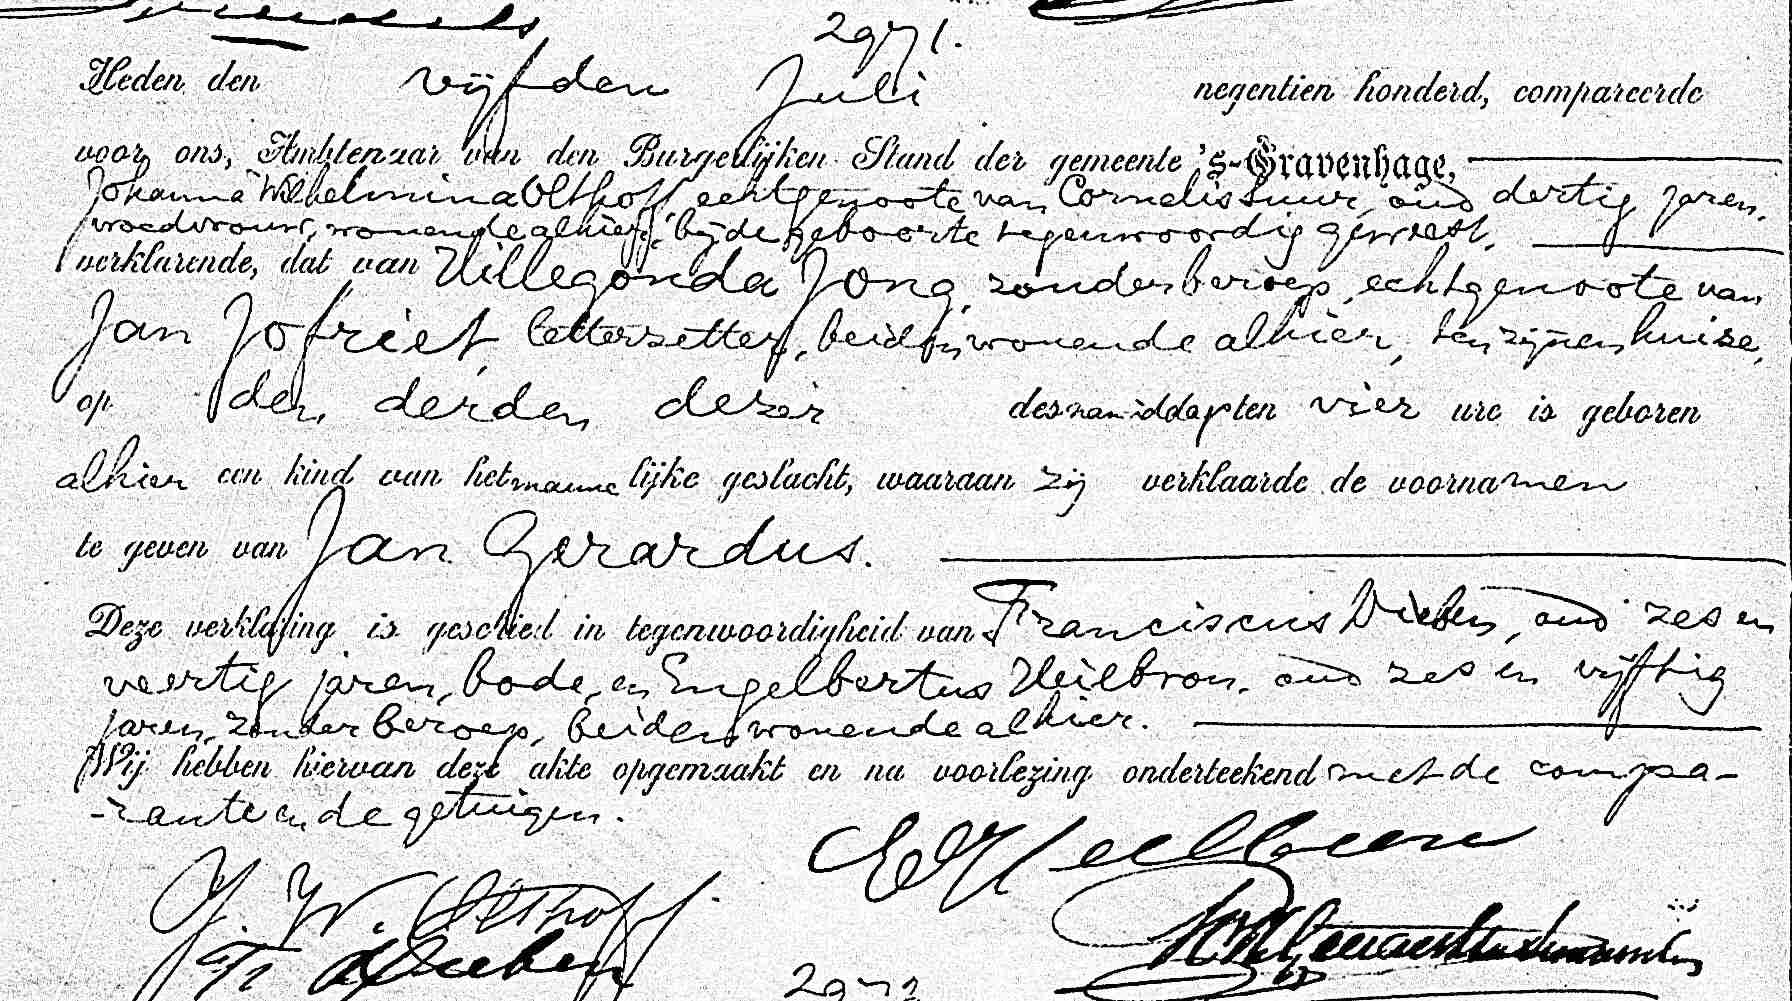 2971.
Heden den vijfden Juli negentien honderd, compareerde
voor ons, Ambtenaar van den Burgerlijken Stand der gemeente 's-Gravenhage,
Johanna Wilhelmina Olthoff, echtgenoote van Cornelis Suur, oud dertig jaren,
vroedvrouw, wonende alhier, bij de geboorte tegenwoordig geweest,
verklarende, dat van Willegonda Jong, zonder beroep, echtgenoote van
Jan Jofriet, letterzetter, beiden wonende alhier, ten zijnen huize,
op den derden dezer des namiddags ten vier ure is geboren
alhier een kind van het mannelijke geslacht, waaraan zij verklaarde de voornamen
te geven van Jan Gerardus.
Deze verklaring is geschied in tegenwoordigheid van Franciscus Dieben, oud zes en
veertig jaren, bode, en Engelbertus Heilbron, oud zes en vijftig
jaren, zonder beroep, beiden wonende alhier.
Wij hebben hiervan deze akte opgemaakt en na voorlezing onderteekend met de compa-
-rante en de getuigen.
E Heilbron
J. W. Olthoff.
Fr Dieben
2972